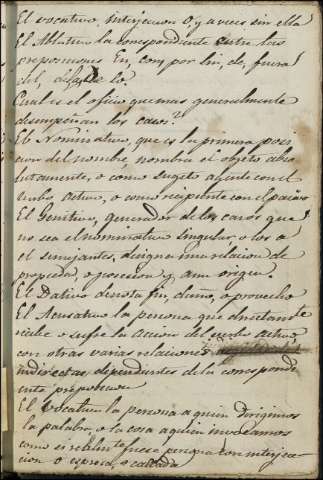 El vocativo, interjecion O, y a veces sin ella
El Ablativo la correspondiente entre las
preposiciones En, con, por sin, de, fuera
del,
Cual es el oficio que mas generalmente
desempeñan los casos?
El Nominativo, que es la primera posi
cion del nombre, nombra el objeto abso
lutamente, o como sugeto agente con el
verbo activo, o como recipiente con el pasivo
El Genitivo, generador de los casos que
no sea el nominativo singular, o los a
el semejantes, designa una relacion de
propiedad, o posecion y aun origen.
El Dativo denota fin, daño, o provecho
El Acusativo la persona que directamente
recibe o sufre la accion del verbo activo,
con otras varias relaciones
indirectas, dependientes de la correspondi
ente preposicion
El vocativo la persona a quien dirigimos
la palabra, o la cosa a quien invocamos
como si intelente fuese persona con interjec
cion O espresa, o callada